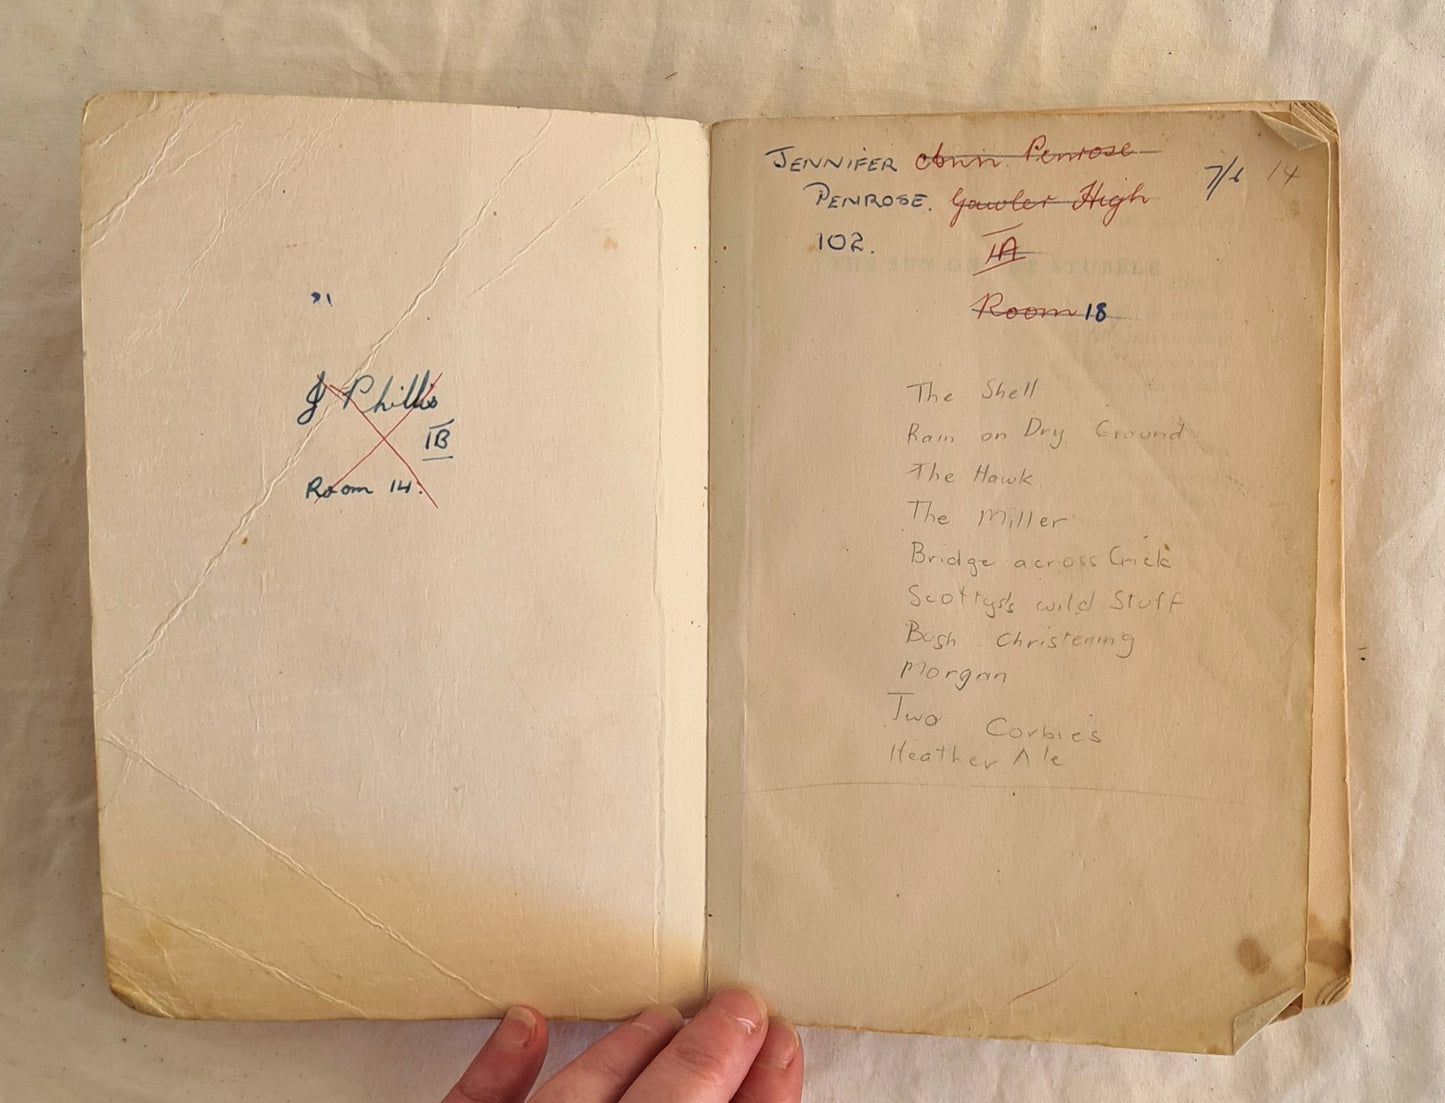 J Phillis
IB
Room 14.
JENNIFER Ann Penrose 7/6 14
PENROSE. Gawler High
102. IA
Room 18
THE SUN ON THE STUBBLE
The Shell
Rain on Dry Ground
The Hawk
The Miller
Bridge across Crick
Scottys's wild Stuff
Bush Christening
Morgan
Two Corbies
Heather Ale